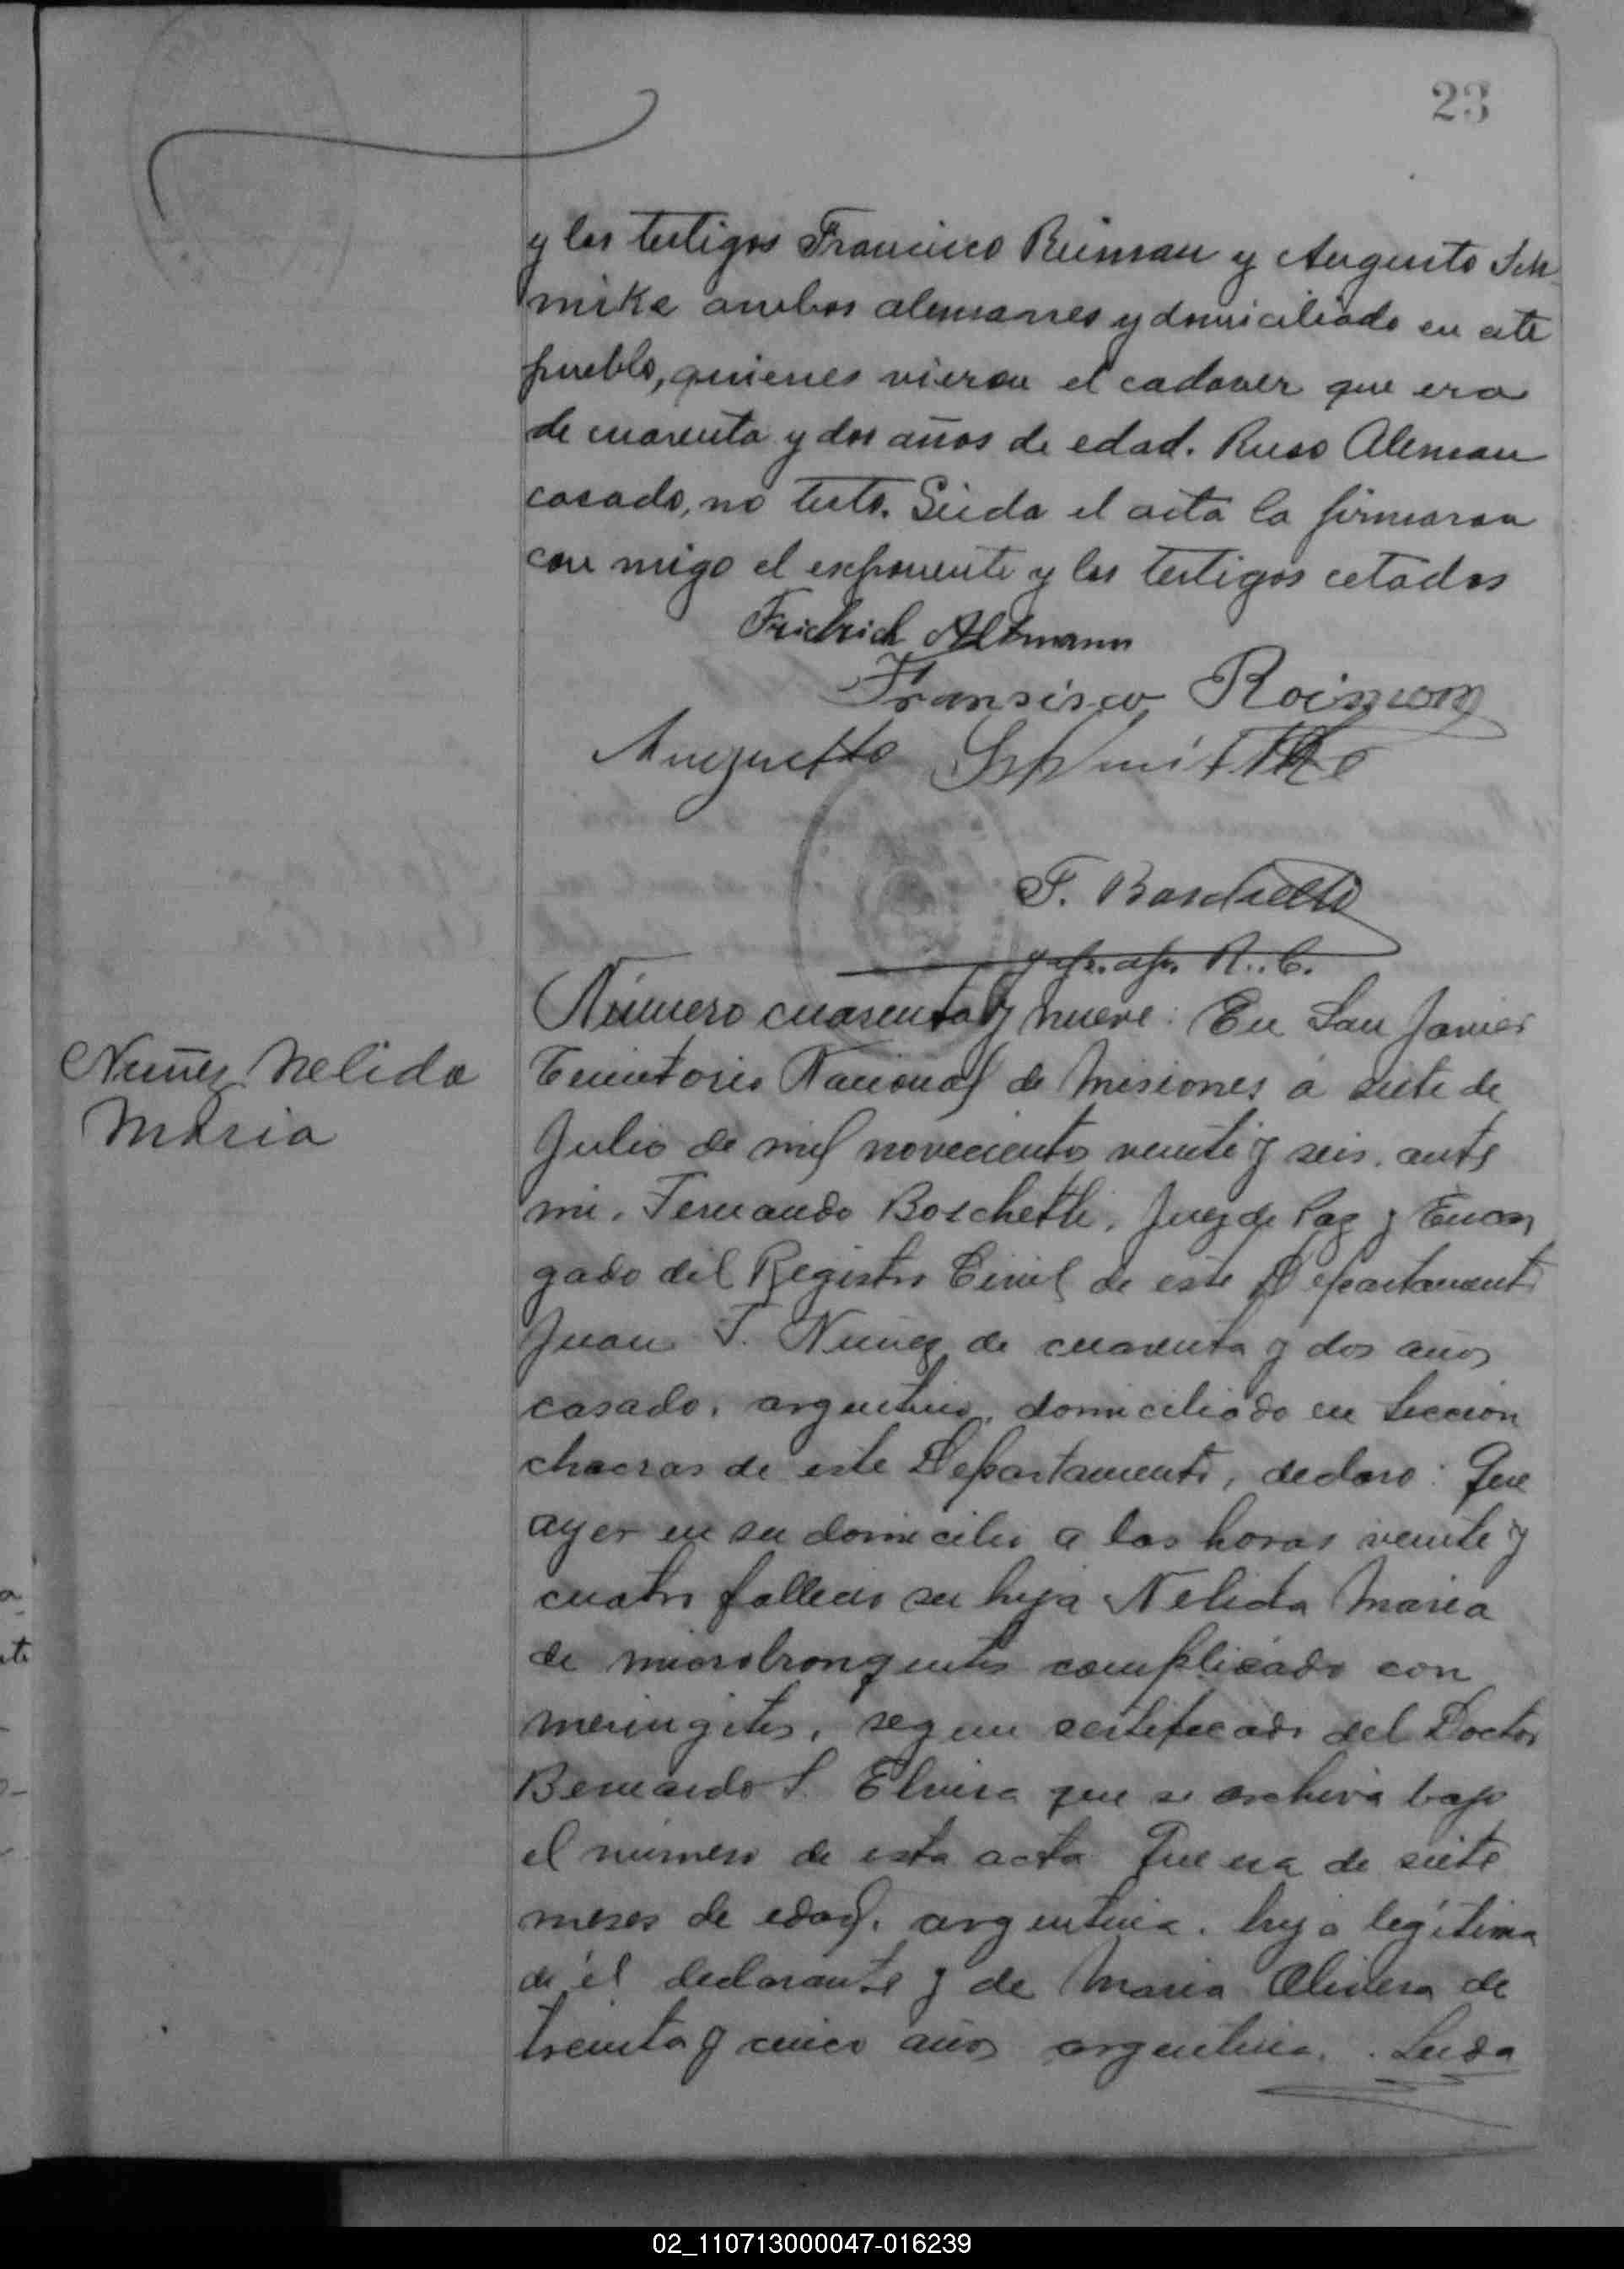 23
y los testigos Francisco Reiman y Augusto Sch
mike ambos alemanes y domiciliado en este
pueblo, quienes vieron el cadaver que era
de cuarenta y dos años de edad. Ruso Aleman
casado, no testo. Leida el acta la firmaron
con migo el exponente y los testigos cetados
Fridrich Altmann
Fransisco Roimom
Auguesto Schmitke
F. Boschetti
R. C.
Número cuarenta y nueve: En San Javier
Nuñez Nelida
Maria
Territorio Nacional de Misiones á siete de
Julio de mil novecientos veinte y seis. ante
mi. Fernando Boschetti, Juez de Paz y Encar
gado del Registro Civil de este Departamento
Juan T. Nuñez de cuarenta y dos años
casado, argentino, domiciliado en Sección
chacras de este Departamento, declaro: Que
ayer en su domicilio a las horas veinte y
cuatro fallecio su hija Nelida Maria
de complicado con
meningitis, segun certificado del Doctor
Bernardo S. Elvira que se archiva bajo
el número de esta acta Que era de siete
meses de edad, argentina. hija legítima
de él declarante y de Maria Olivera de
treinta y cinco años argentina. Leida
02_110713000047-016239